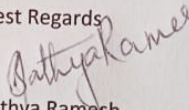 est Regards
SathyaRames
thya Ramesh